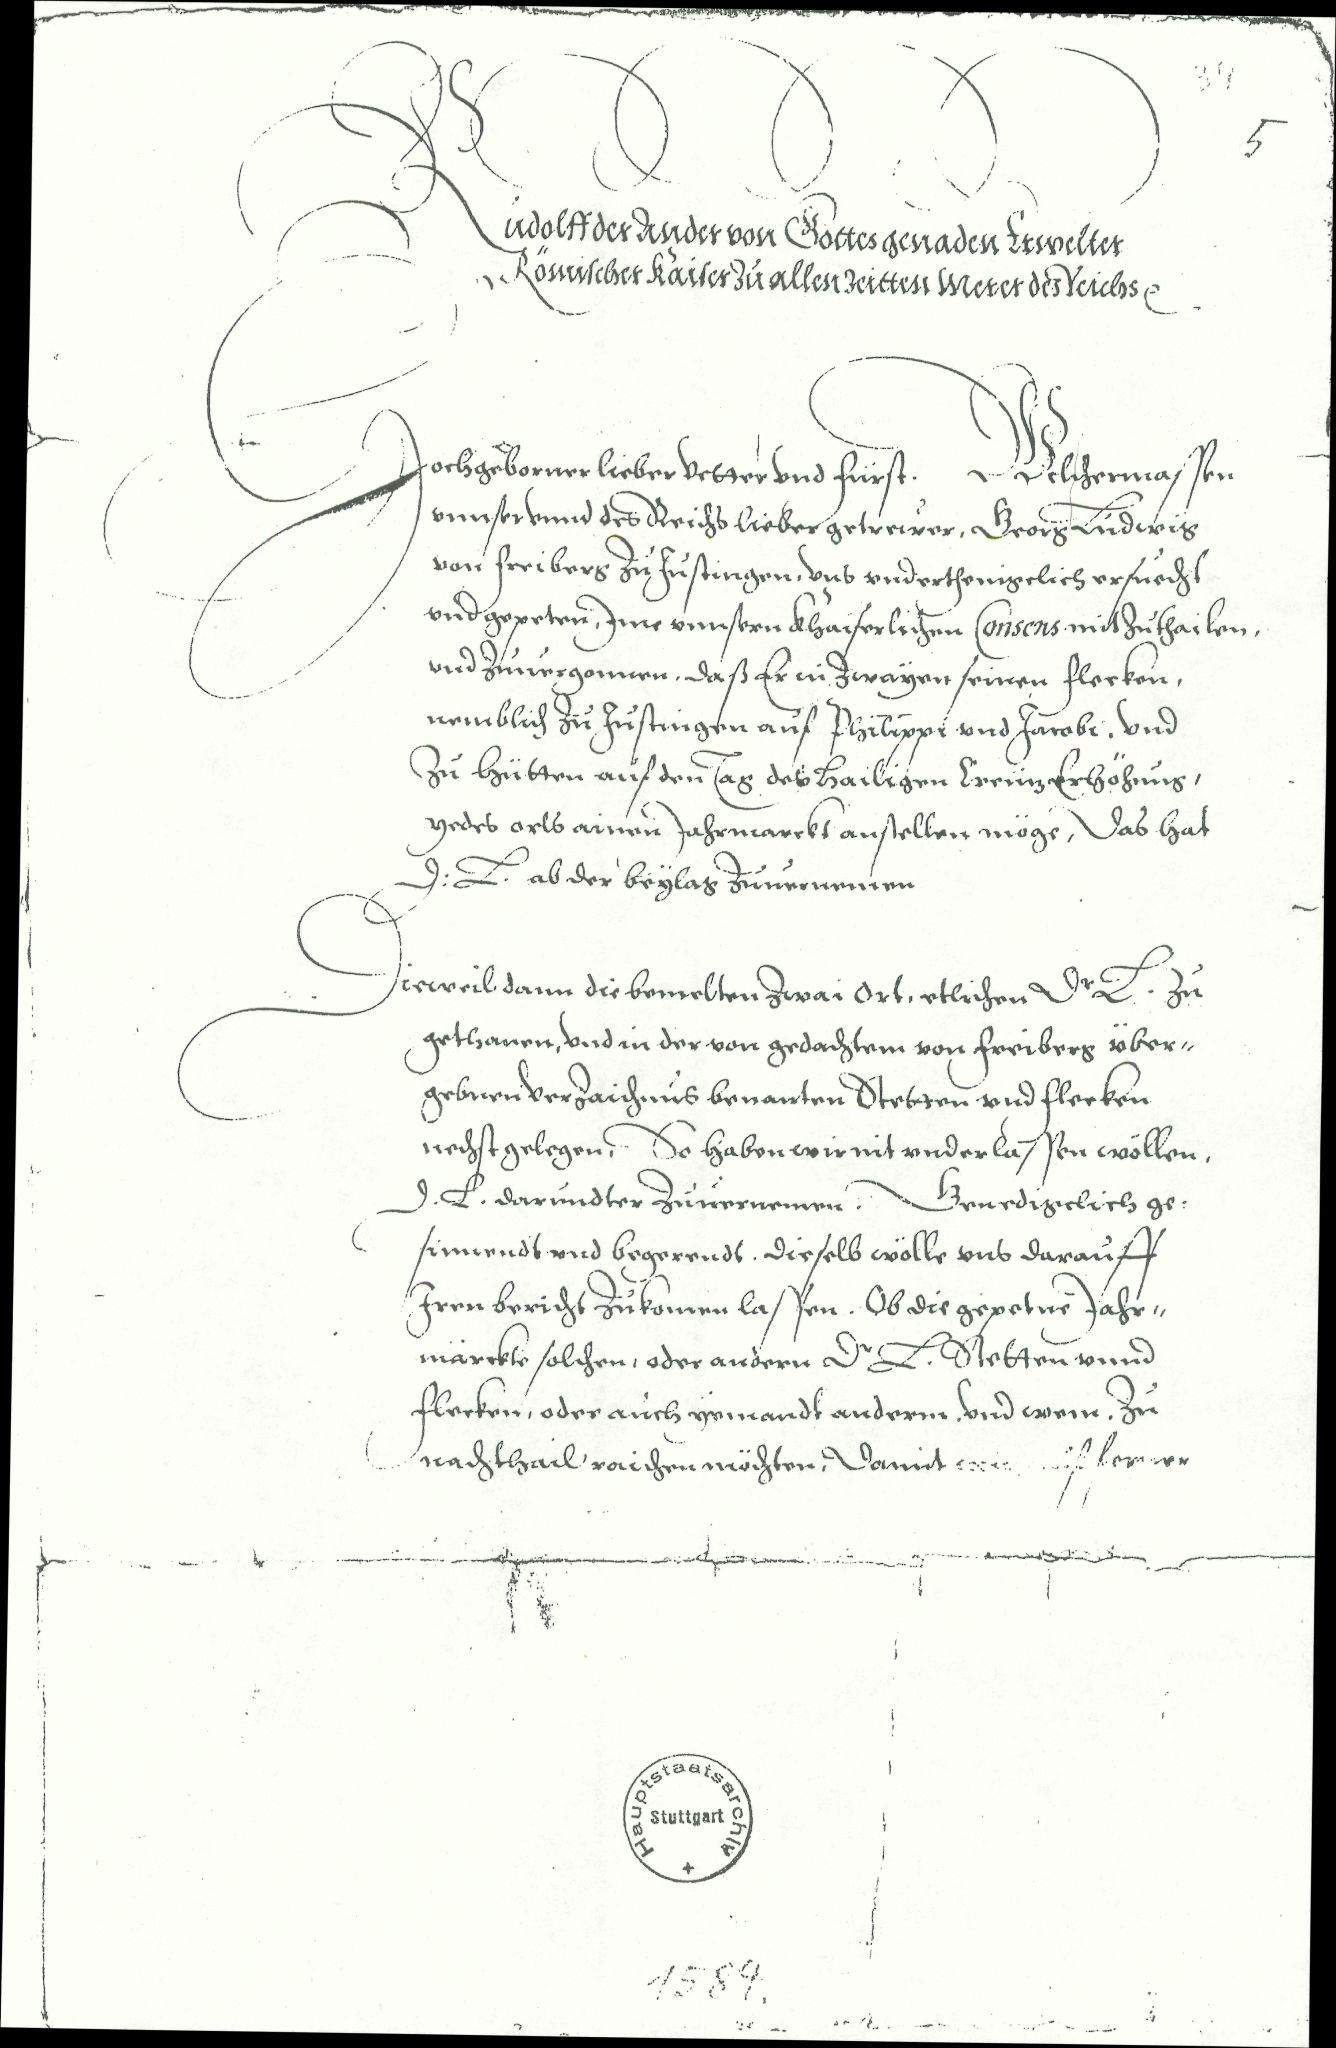 34
5
Rudolff der Ander von Gottes genaden Erwelter
Römischer Kaiser zu allen zeitten Merer des Reichs
Hochgeborner lieber Vetter vnd Fürst. Welchermassen
vnnser vnnd des Reichs lieber getrewer, Georg Ludwig
von Freiberg zu Justingen, vns vnderthenigclich ersuecht
vnd gepeten, Jme vnnsern Khaiserlichen Consens mit zuthailen,
vnd zuuergonnen, daß Er in zwayen seinen Flecken,
nemblich zu Justingen auf Philippi vnd Jacobi, vnd
zu Hütten auf den Tag des hailigen Creütz Erhöhung,
yedes orts ainen Jahrmarckt anstellen möge, Das hat
D: L. ab der beylag zuuernemen
Dieweil dann die bemelten zwai Ort, etlichen Dr L. zu
gethanen, vnd in der von gedachtem von Freiberg über-
gebnen Verzaichnus benanten Stetten vnd Flecken
nechst gelegen, So haben wir nit vnderlassen wöllen,
D. L. darundter zuuernemen. Genedigclich ge:
sinnendt vnd begerendt, dieselb wölle vns darauff
Iren bericht zukomen lassen, Ob die gepetne Jahr-
märckte solchen, oder andern Dr L. Stetten vnnd
Flecken, oder auch yemandt anderm, vnd wem, zu
nachthail raichen möchten, Damit ferner
Hauptstaatsarchiv
Stuttgart
1589.